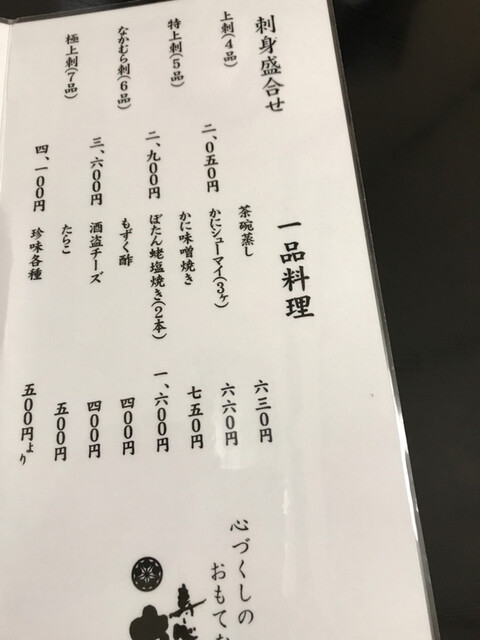 刺身盛合せ
上刺(4品) 二、〇五〇円
特上刺(5品) 二、九〇〇円
なかむら刺(6品) 三、六〇〇円
極上刺(7品) 四、一〇〇円
一品料理
茶碗蒸し 六三〇円
かにシューマイ(3ヶ) 六六〇円
かに味噌焼き 七五〇円
ぼたん蛯塩焼き(2本) 一、六〇〇円
もずく酢 四〇〇円
酒盗チーズ 四〇〇円
たらこ 五〇〇円
珍味各種 五〇〇円より
心づくしの
おもてな
寿し